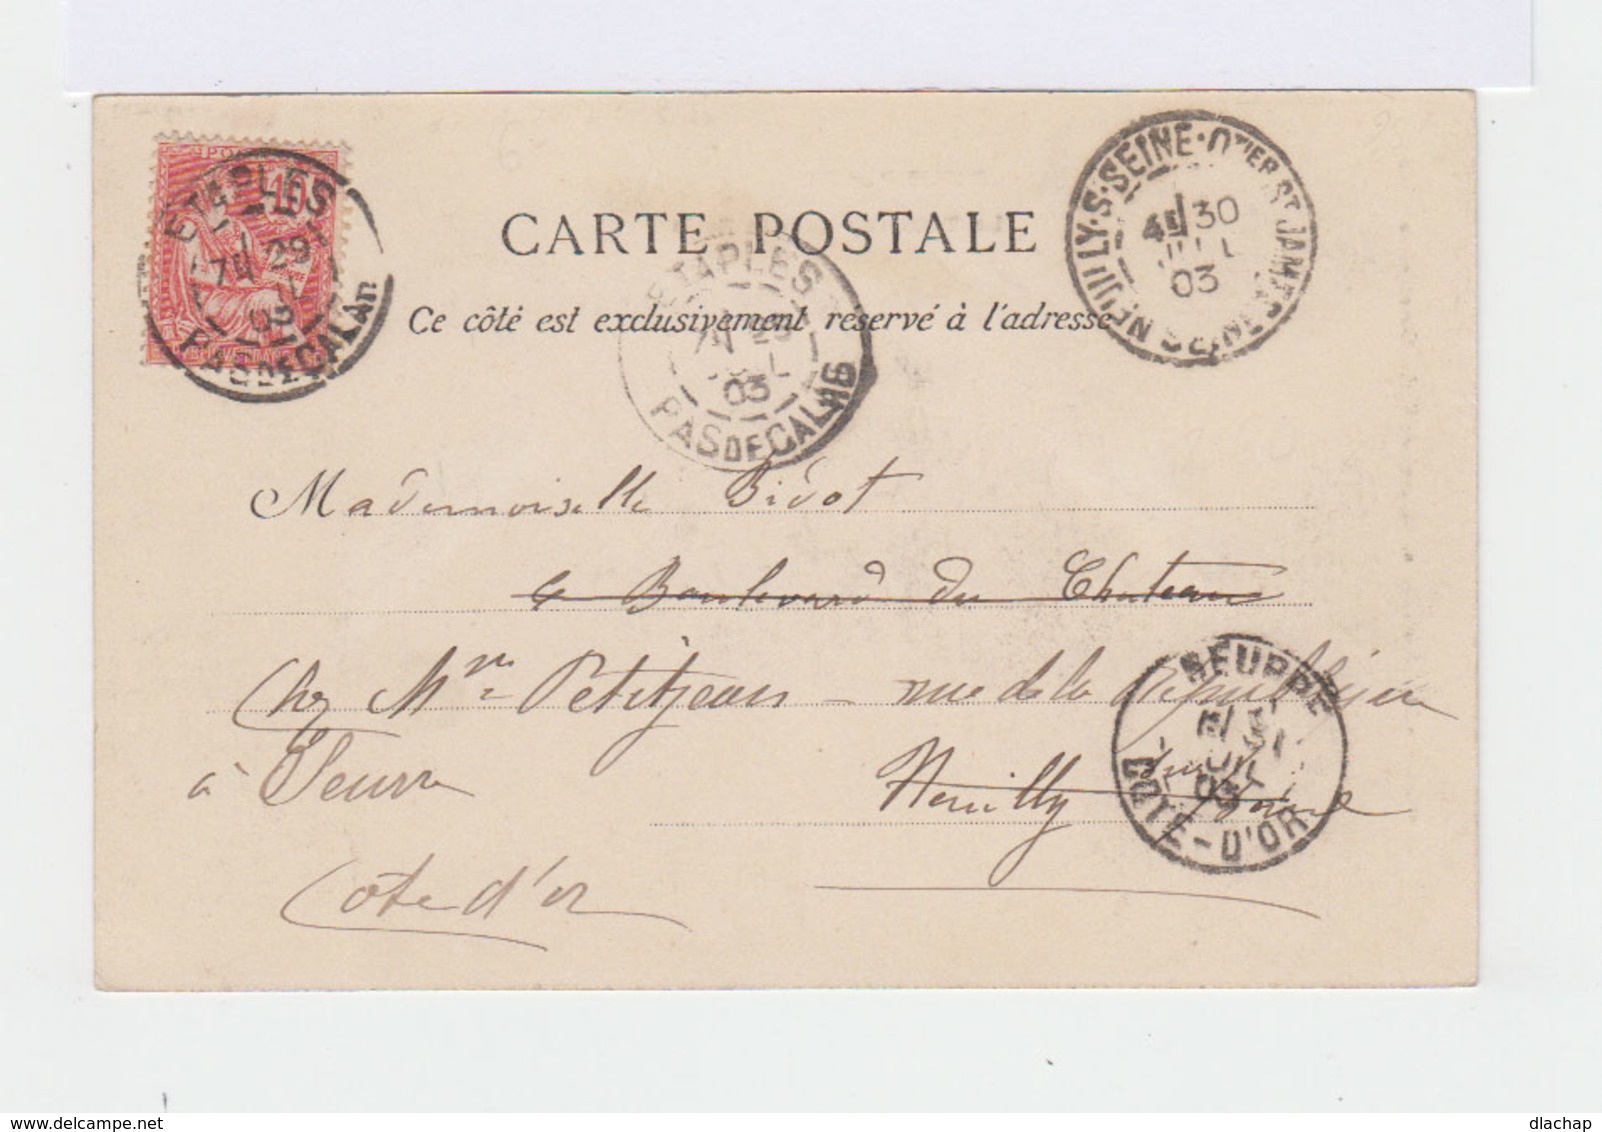 POSTES
10
ETAPLES
7M 29
03
PAS DE CALAIS
CARTE POSTALE
Ce côté est exclusivement réservé à l'adresse
ETAPLES
7M 29
JUIL
03
PAS DE CALAIS
NEUILLY-S-SEINE-QTIER ST JAMES
30
JUIL
03
Mademoiselle Bidot
Boulevard du Chateau
Chez Mme Petitjean - rue de la République
à Seurre Neuilly sur Seine
Côte d'or
SEURRE
31
JUIL
03
COTE-D'OR
dlachap
delcampe.net